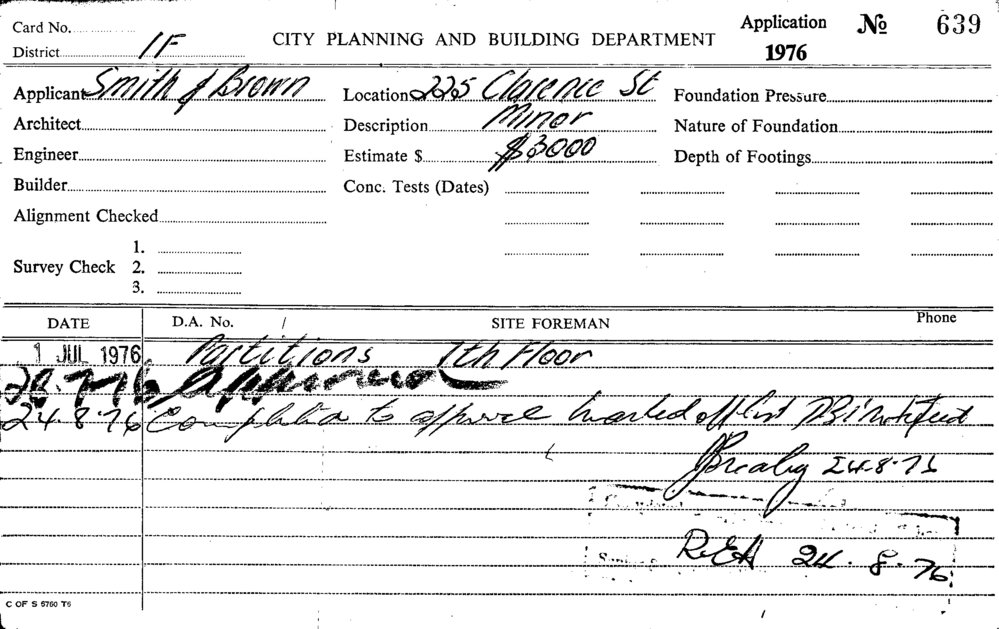 Card No.
District 1F
CITY PLANNING AND BUILDING DEPARTMENT
Application No 639
1976
Applicant Smith & Brown
Location 225 Clarence St
Foundation Pressure
Architect
Description Minor
Nature of Foundation
Engineer
Estimate $ $3000
Depth of Footings
Builder
Conc. Tests (Dates)
Alignment Checked
Survey Check
1.
2.
3.
DATE D.A. No. / SITE FOREMAN Phone
1 JUL 1976 Partitions 7th Floor
approved
24.8.76 to marked off list
24.8.76
24.8.76
C OF S 5760 T6